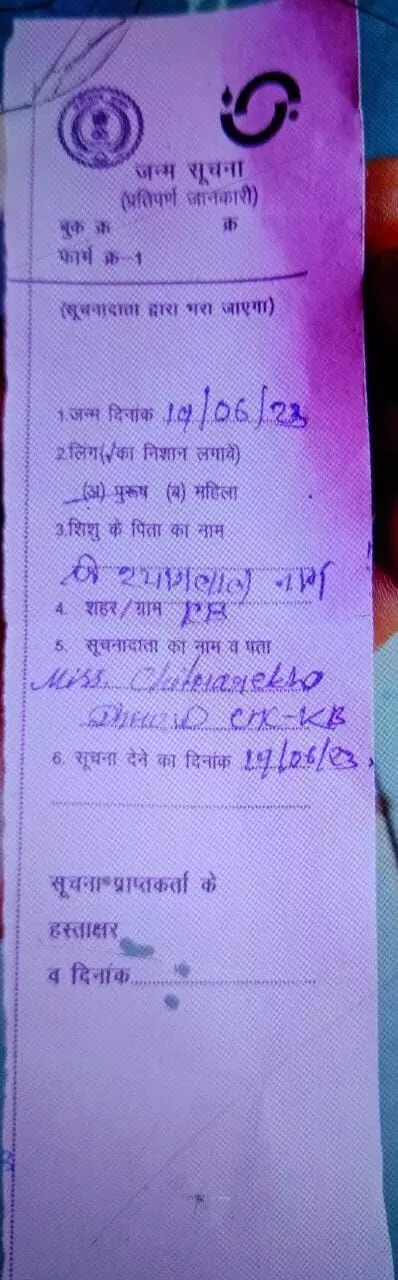 जन्म सूचना
(प्रतिपर्ण जानकारी)
बुक क्र क्र
फार्म क्र-1
(सूचनादाता द्वारा भरा जाएगा)
1.जन्म दिनांक 19/06/23
2.लिंग(√का निशान लगावें)
(अ) पुरूष (ब) महिला
3.शिशु के पिता का नाम
श्यामलाल नाग
4. शहर/ग्राम KB
5. सूचनादाता का नाम व पता
Miss.
CHC-KB
6. सूचना देने का दिनांक 19/06/23
सूचना प्राप्तकर्ता के
हस्ताक्षर
व दिनांक